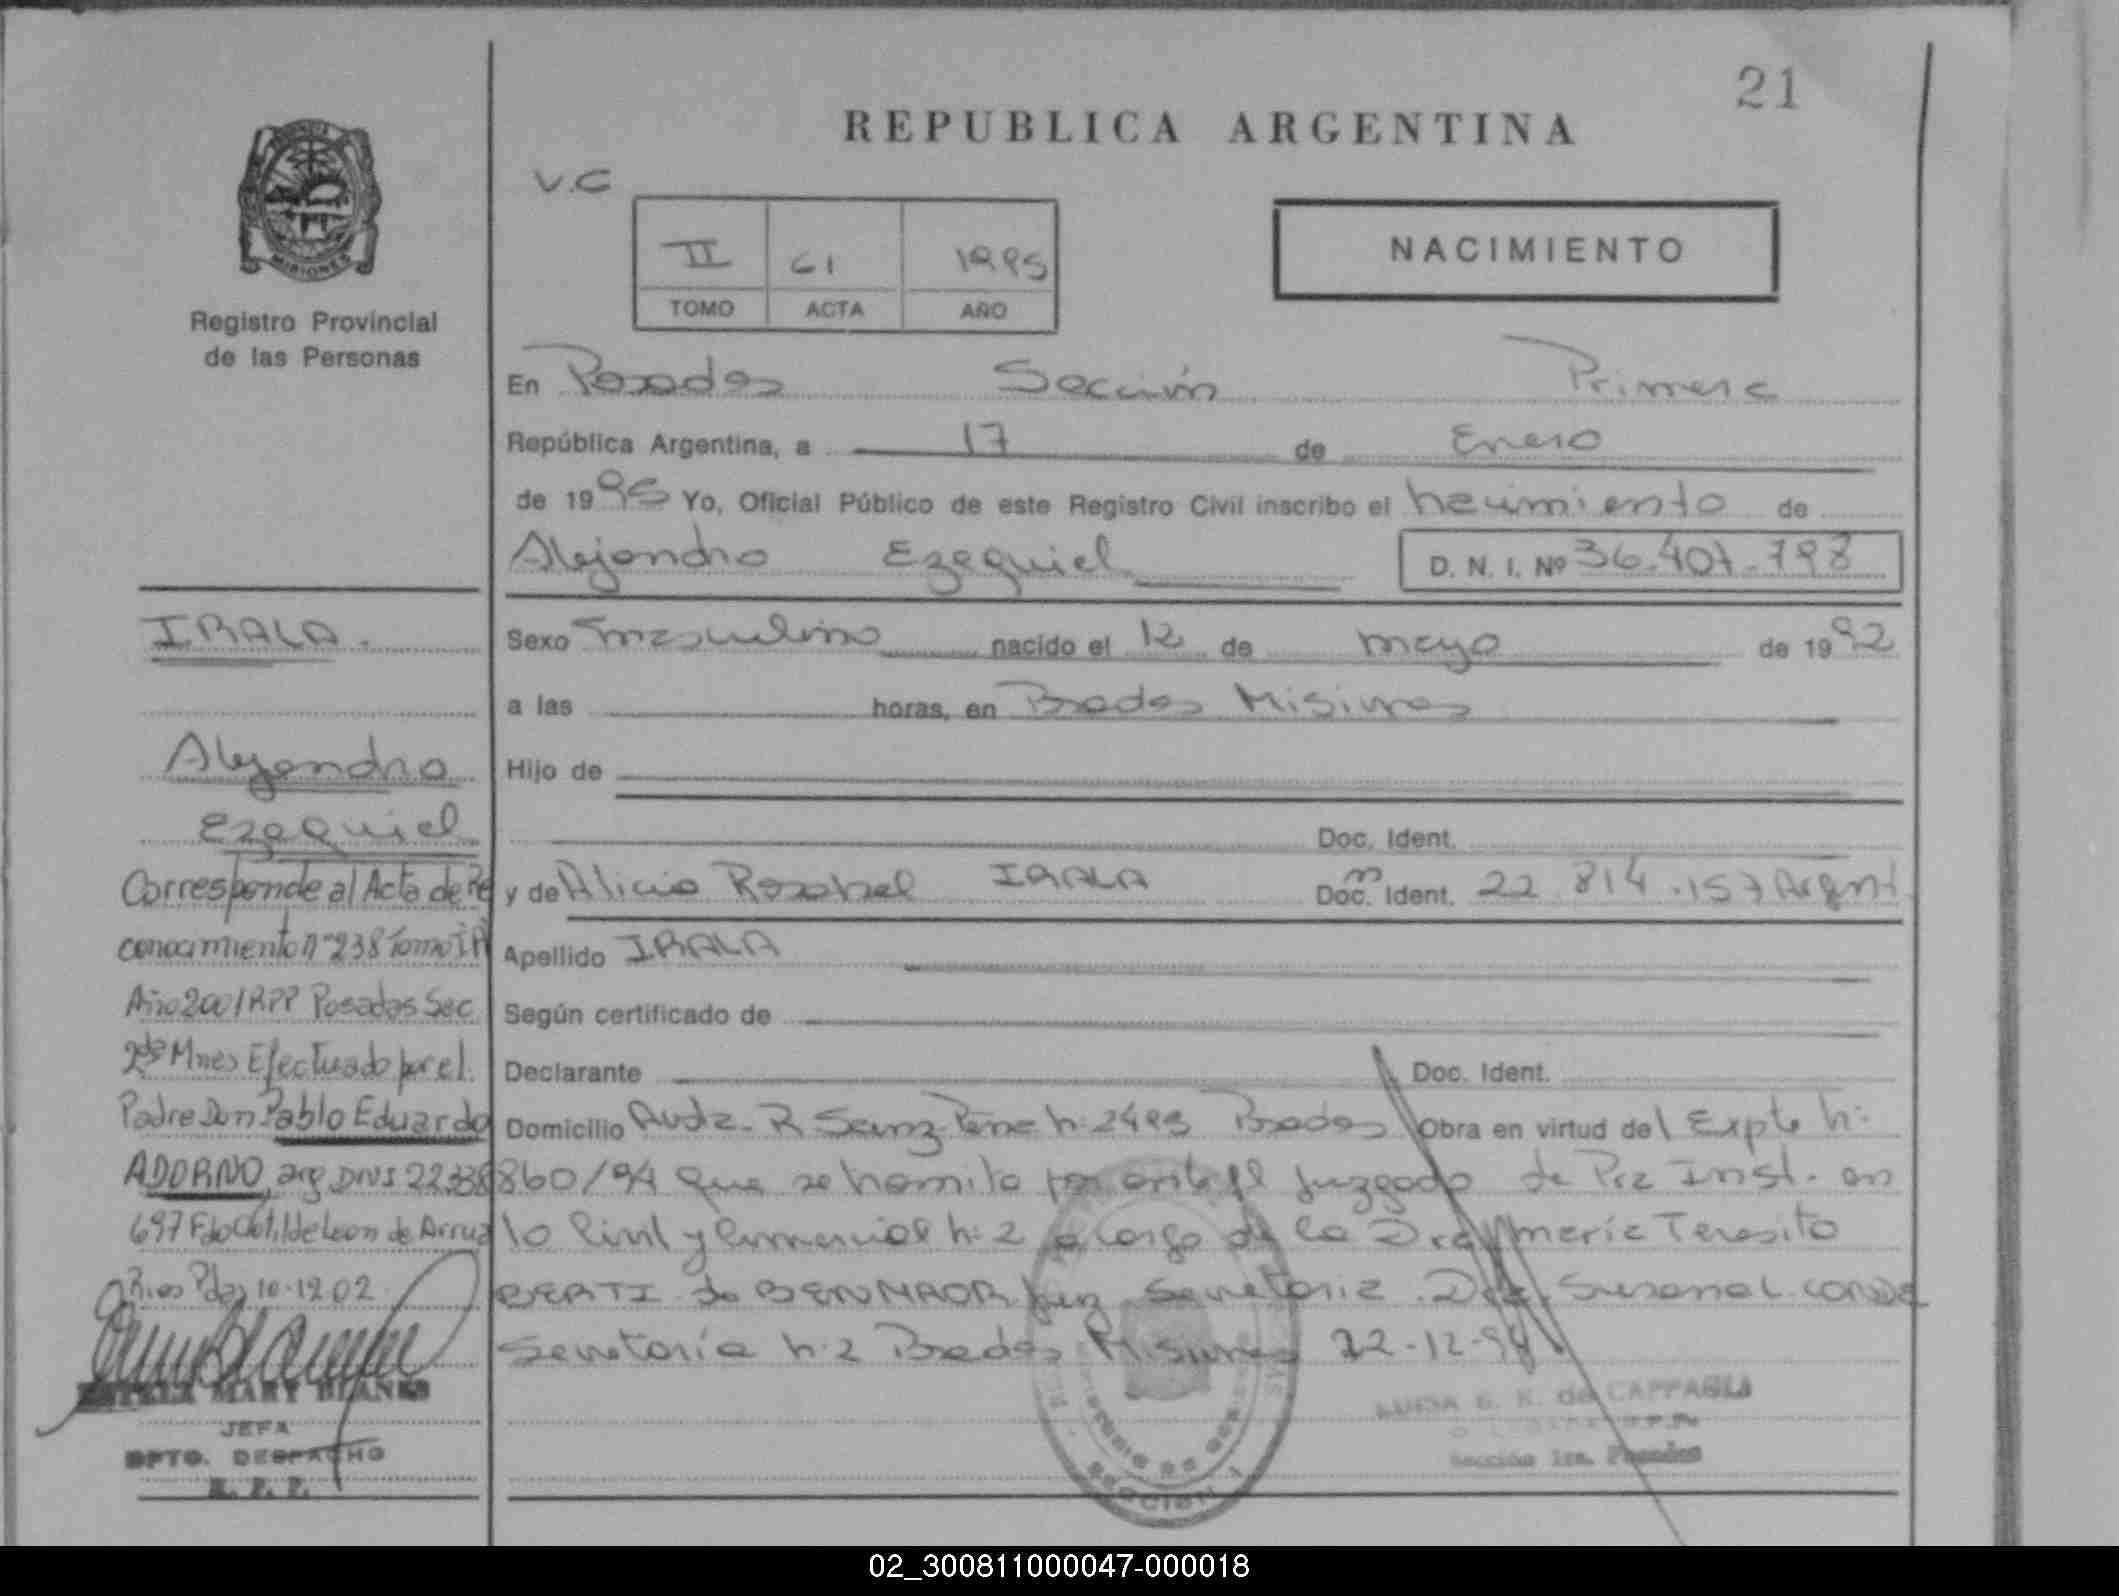 21
REPUBLICA ARGENTINA
V.C
II 61 1995
TOMO ACTA AÑO
NACIMIENTO
MISIONES
Registro Provincial
de las Personas
En Posadas Sección Primera
República Argentina, a 17 de Enero
de 1995 Yo, Oficial Público de este Registro Civil inscribo el nacimiento de
Alejandro Ezequiel D. N. I. Nº 36.407.798
Sexo masculino nacido el 12 de mayo de 1992
a las horas, en Posadas Misiones
Hijo de
Doc. Ident.
y de Alicia Rosabel IRALA Doc. Ident. 22.814.157 Argent.
Apellido IRALA
Según certificado de
Declarante Doc. Ident.
Domicilio Avda. R Saenz Peña n: 2495 Posadas Obra en virtud del Expte n:
860/94 que se tramita por ante el Juzgado de Pra Inst. en
lo Civil y Comercial n: 2 a cargo de la Dra María Teresita
BERTI de BENMAOR Juez Secretaria Dra. Susana L.
Secretaría n: 2 Posadas Misiones 22-12-94
IRALA.
Alejandro
Ezequiel
Corresponde al Acta de Re
conocimiento nº 238 Tomo
Año 2001 RPP Posadas Sec
2da Mnes Efectuado por el
Padre Don Pablo Eduardo
ADORNO, arg DNI 22.338
697 Fdo Clotilde Leon de
Rios Pdas 10-12-02
MARY BLANES
JEFA
DPTO. DESPACHO
R. P. P.
SECCION 1
LUISA de CAPPAGLI
Sección 1ra. Posadas
02_300811000047-000018